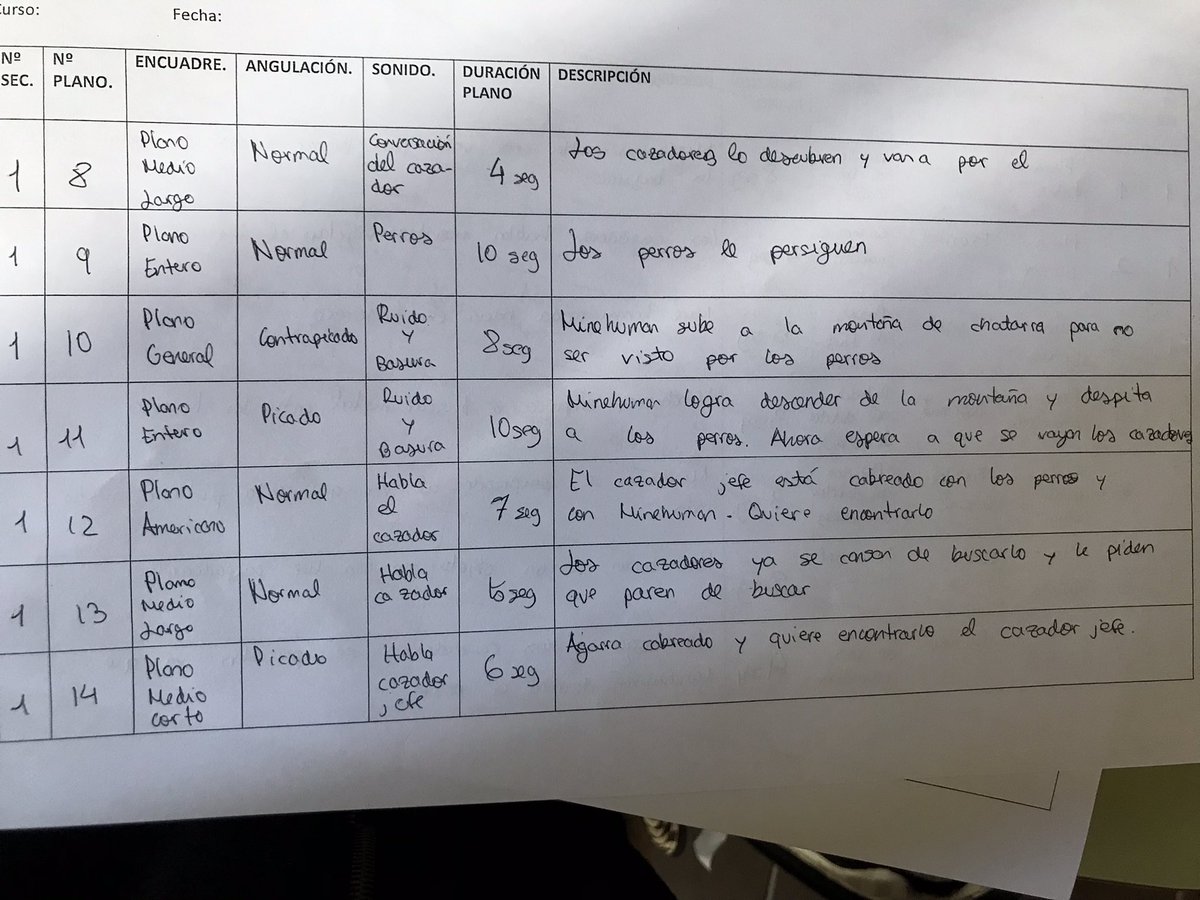 Curso:
Fecha:
Nº SEC.
Nº PLANO.
ENCUADRE.
ANGULACIÓN.
SONIDO.
DURACIÓN PLANO
DESCRIPCIÓN
1
8
Plano
Medio
Largo
Normal
Conversación
del caza-
dor
4 seg
Los cazadores lo descubren y van a por el
1
9
Plano
Entero
Normal
Perros
10 seg
Los perros le persiguen
1
10
Plano
General
Contrapicado
Ruido
y
Basura
8 seg
Minehuman sube a la montaña de chatarra para no
ser visto por los perros
1
11
Plano
Entero
Picado
Ruido
y
Basura
10 seg
Minehuman logra descender de la montaña y despita
a los perros. Ahora espera a que se vayan los cazadores
1
12
Plano
Americano
Normal
Habla
el
cazador
7 seg
El cazador jefe está cabreado con los perros y
con Minehuman. Quiere encontrarlo
1
13
Plano
Medio
Largo
Normal
Habla
cazador
5 seg
Los cazadores ya se cansan de buscarlo y le piden
que paren de buscar
1
14
Plano
Medio
corto
Picado
Habla
cazador
jefe
6 seg
Agarra cabreado y quiere encontrarlo el cazador jefe.